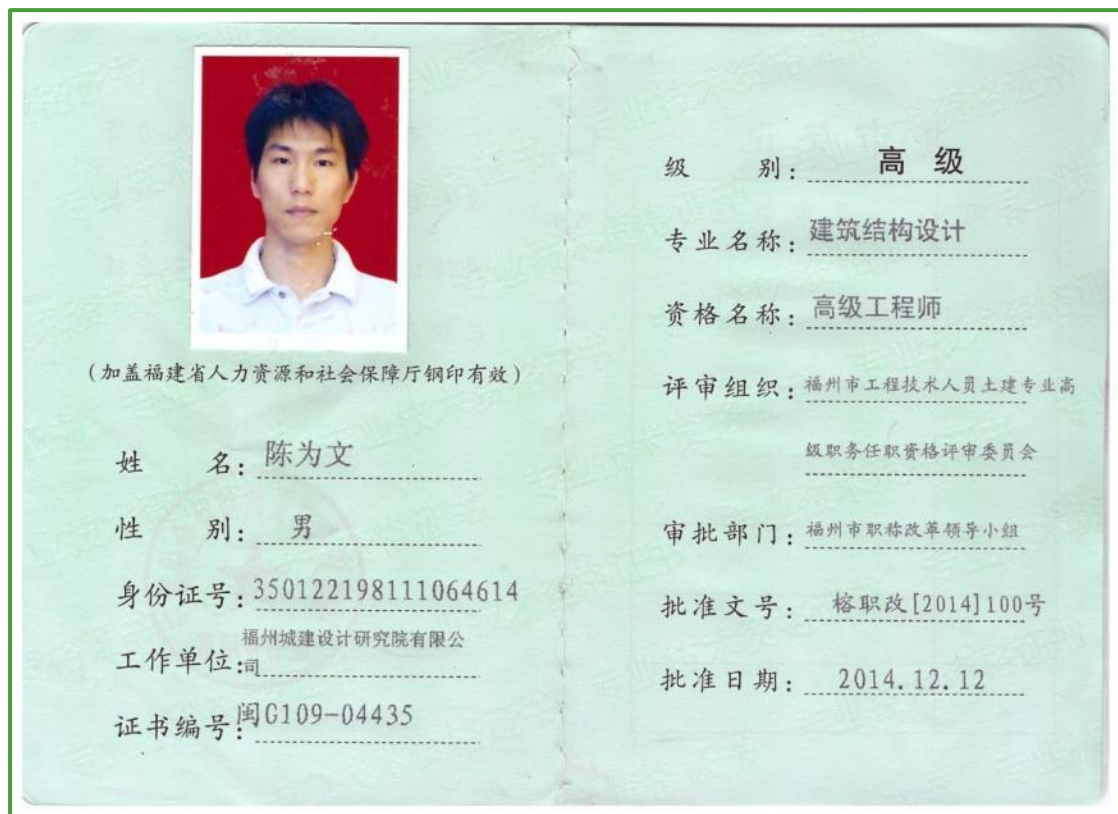 (加盖福建省人力资源和社会保障厅钢印有效)
姓 名: 陈为文
性 别: 男
身份证号: 350122198111064614
工作单位: 福州城建设计研究院有限公
司
证书编号: 闽G109-04435
级 别: 高 级
专业名称: 建筑结构设计
资格名称: 高级工程师
评审组织: 福州市工程技术人员土建专业高
级职务任职资格评审委员会
审批部门: 福州市职称改革领导小组
批准文号: 榕职改[2014]100号
批准日期: 2014.12.12